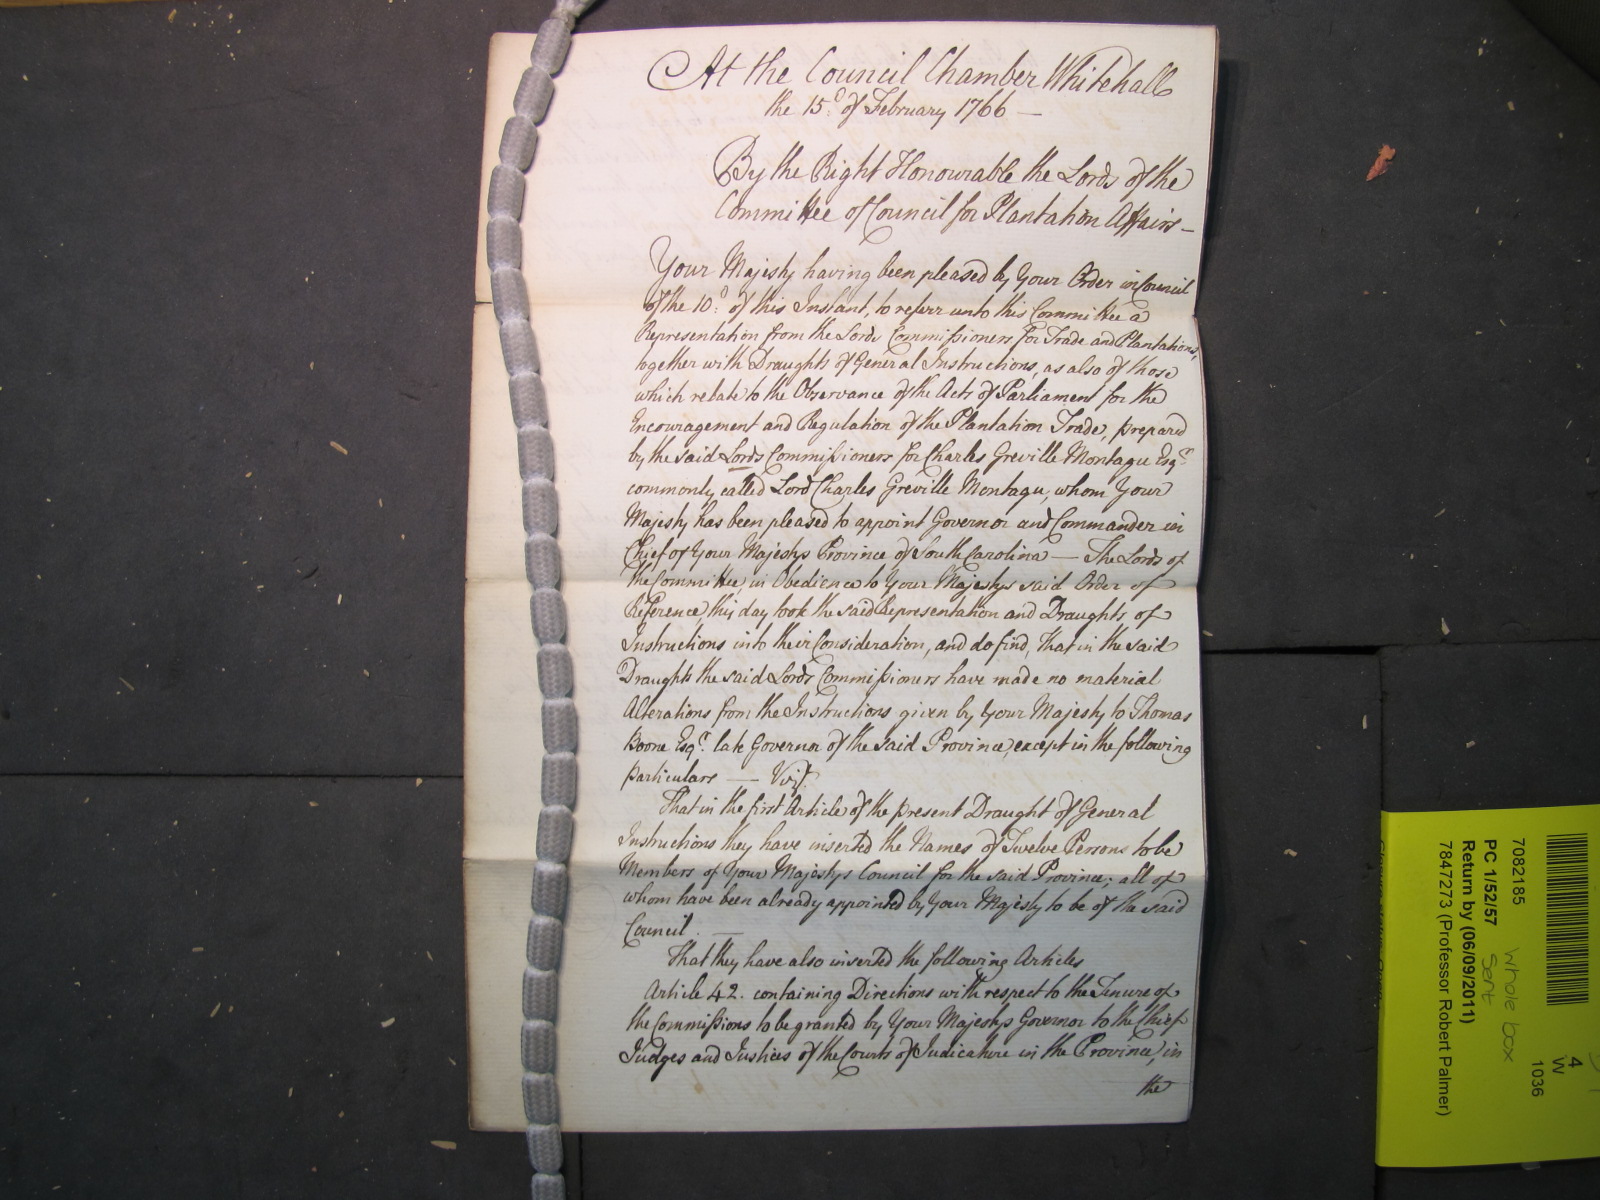 At the Council Chamber Whitehall
the 15.th of February 1766 —
By the Right Honourable the Lords of the
Committee of Council for Plantation Affairs —
Your Majesty having been pleased by Your Order in Council
of the 10.th of this Instant, to referr unto this Committee a
Representation from the Lords Commissioners for Trade and Plantations,
together with Draughts of General Instructions, as also of those
which relate to the Observance of the Acts of Parliament for the
Encouragement and Regulation of the Plantation Trade, prepared
by the said Lords Commissioners for Charles Greville Montagu Esq.r
commonly called Lord Charles Greville Montagu, whom Your
Majesty has been pleased to appoint Governor and Commander in
Chief of Your Majestys Province of South Carolina — The Lords of
the Committee in Obedience to Your Majestys said Order of
Reference, this day took the said Representation and Draughts of
Instructions into their Consideration, and do find, That in the said
Draughts the said Lords Commissioners have made no material
Alterations from the Instructions given by Your Majesty to Thomas
Boone Esq.r late Governor of the said Province, except in the following
particulars — Vizt.
That in the first Article of the present Draught of General
Instructions they have inserted the Names of Twelve Persons to be
Members of Your Majestys Council for the said Province; all of
whom have been already appointed by Your Majesty to be of the said
Council. —
That they have also inserted the following Articles
Article 42. containing Directions with respect to the Tenure of
the Commissions to be granted by Your Majestys Governor to the Chief
Judges and Justices of the Courts of Judicature in the Province, in
the
7082185
PC 1/52/57
Return by (06/09/2011)
7847273 (Professor Robert Palmer)
4
W
1036
whole box
sent